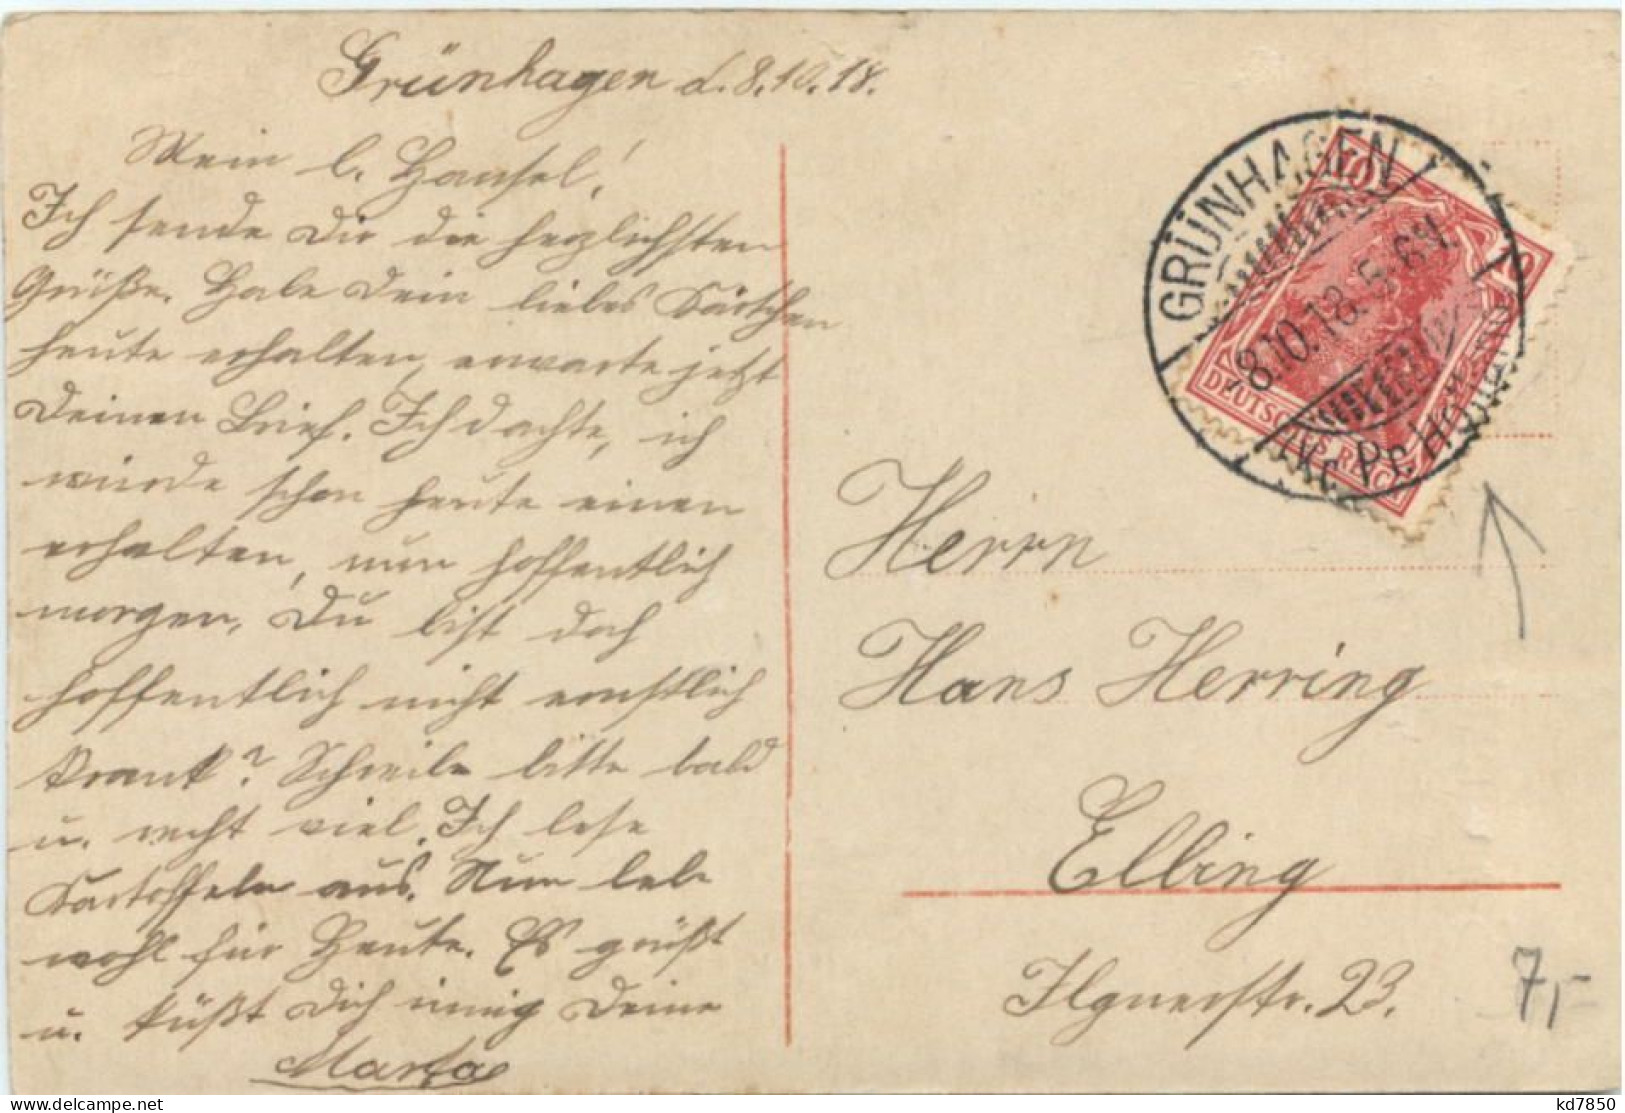 Grünhagen d. 8.10.18.
Mein l. Hansel!
Ich sende Dir die herzlichsten
Grüße. Habe Dein liebes Kärtchen
heute erhalten, erwarte jetzt
Deinen Brief. Ich dachte, ich
würde schon heute einen
erhalten, nun hoffentlich
morgen. Du bist doch
hoffentlich nicht ernstlich
krank? Schreibe bitte bald
u. recht viel. Ich lese
Kartoffeln aus. Nun lebe
wohl für Heute. Es grüßt
u. küßt Dich innig Deine
Marta
GRÜNHAGEN
8.10.18. 5-6N.
DEUTSCHES REICH
10
10
Herrn
Hans Herring
Elbing
Ilgnerstr. 23.
7,-
kd7850